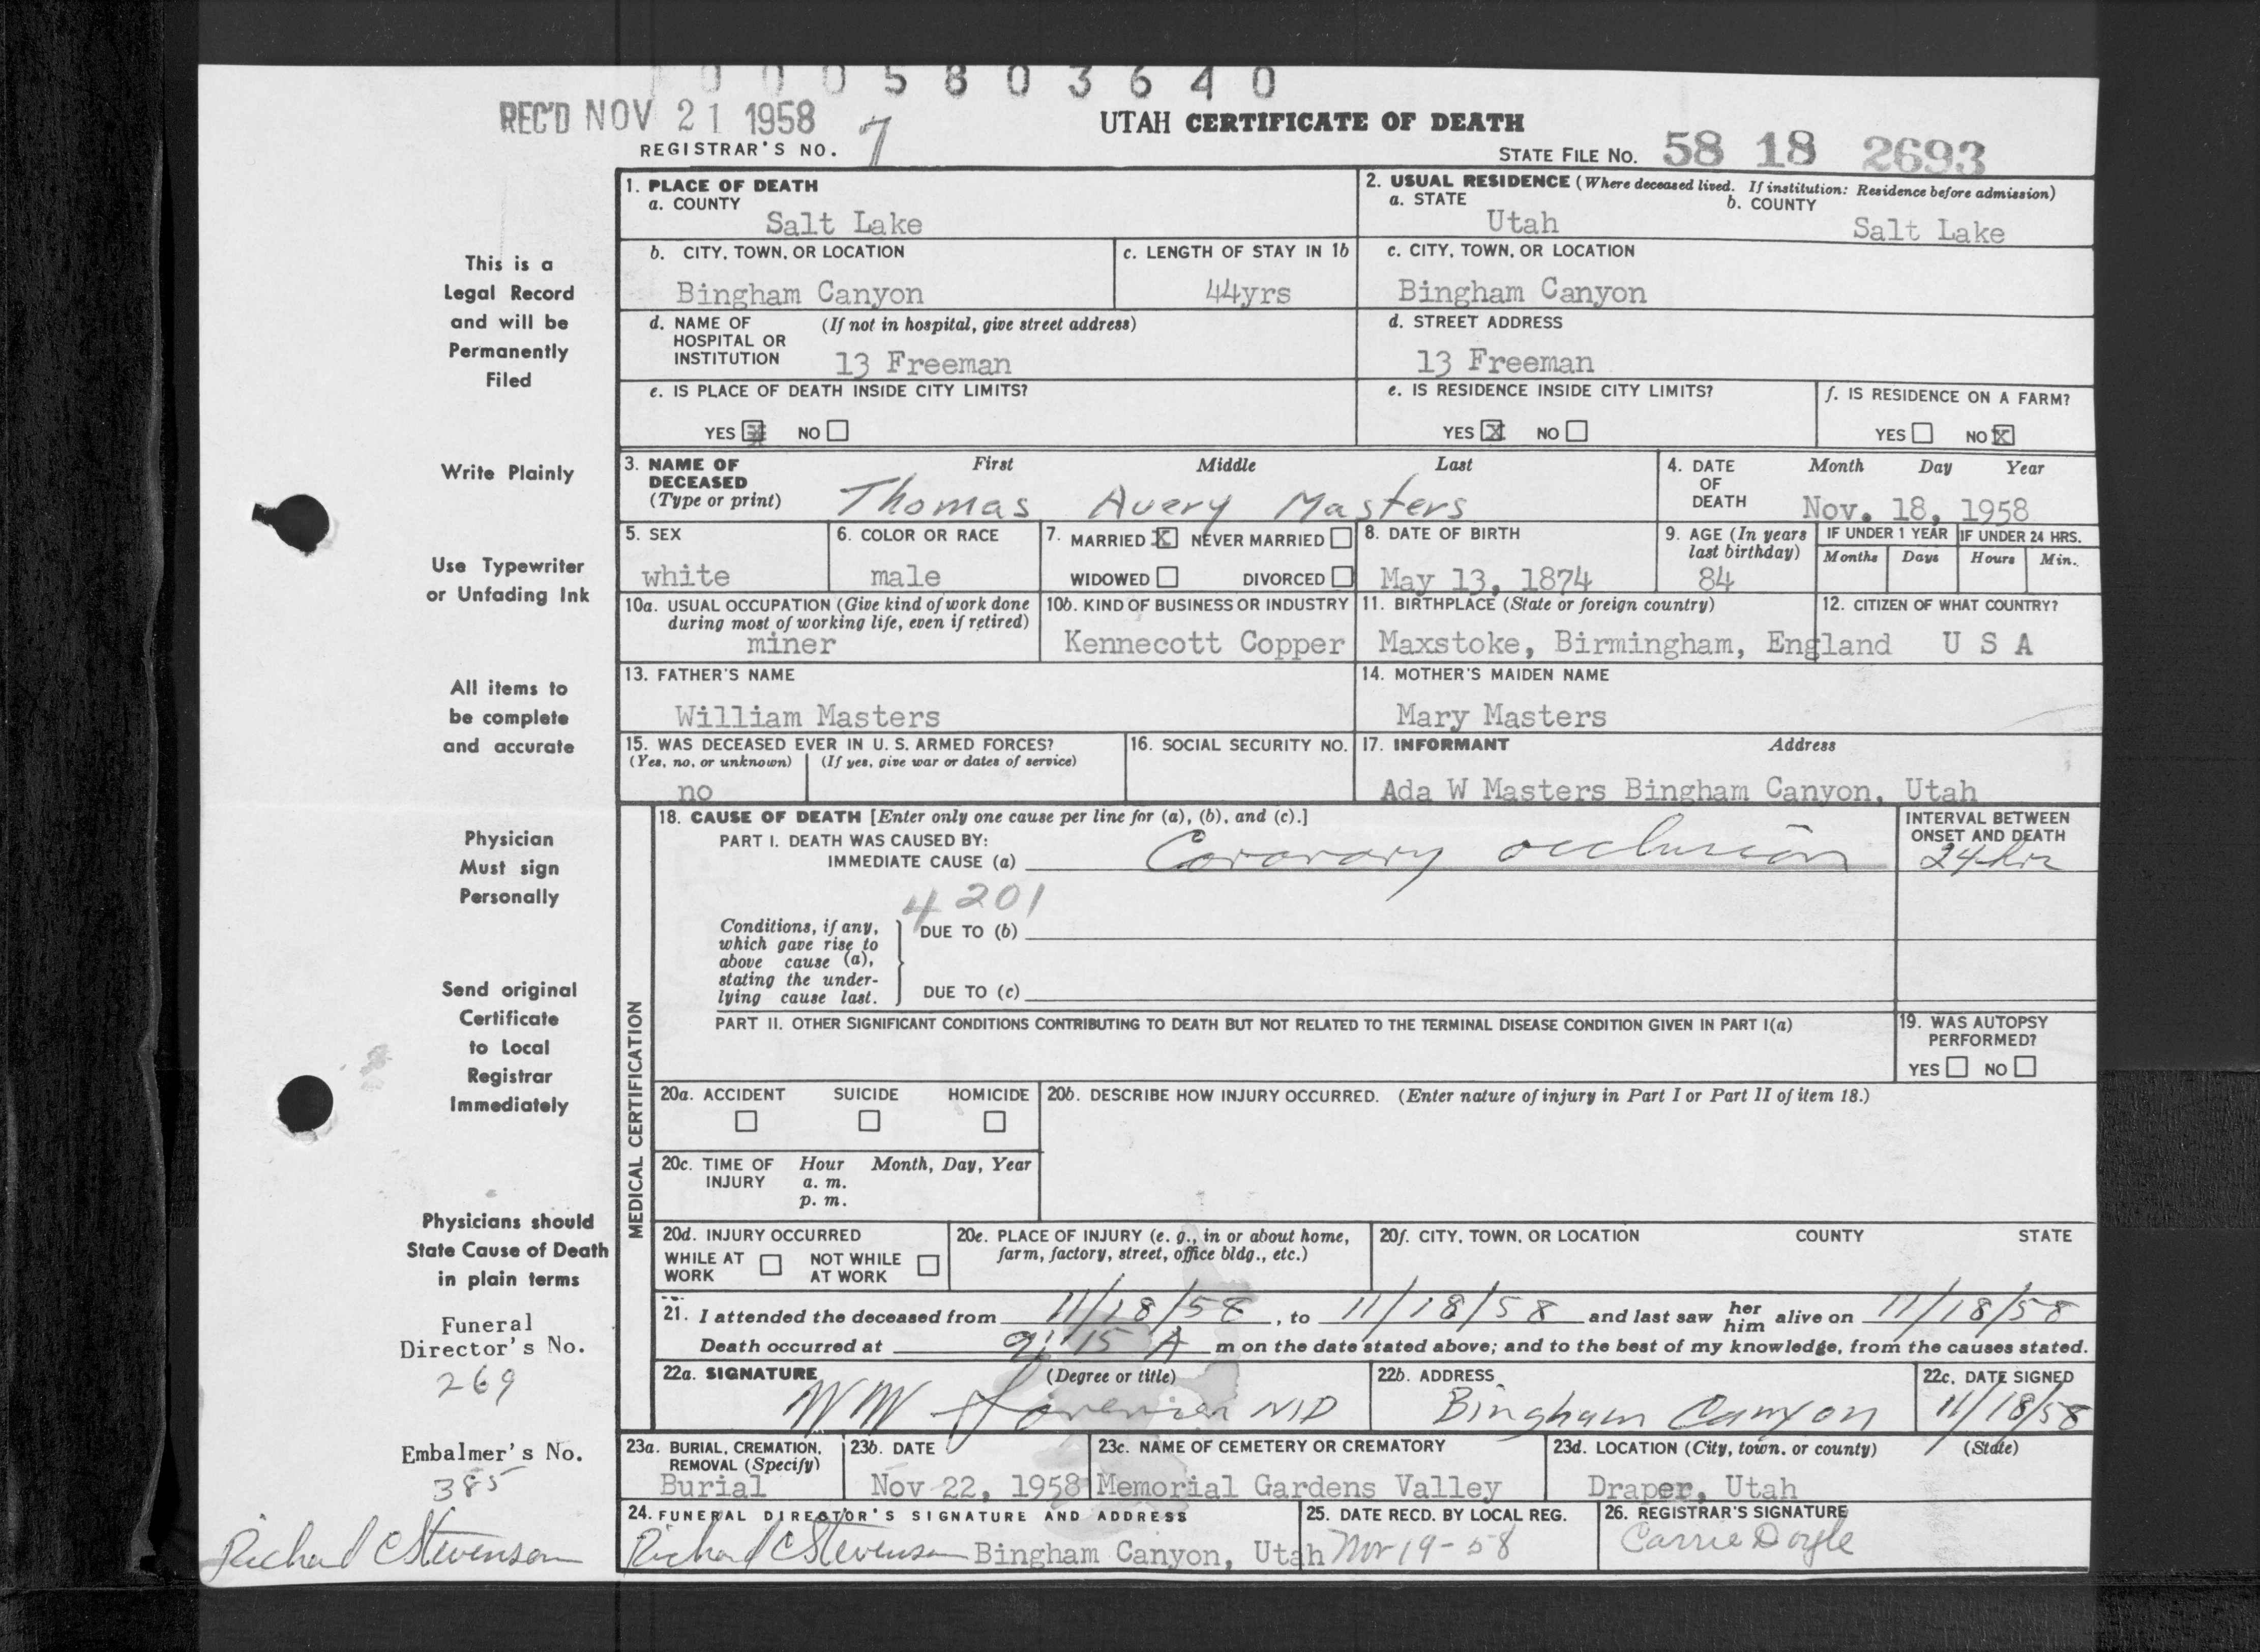 0 0 0 5 8 0 3 6 4 0
REC'D NOV 21 1958
UTAH CERTIFICATE OF DEATH
REGISTRAR'S NO. 7
STATE FILE NO. 58 18 2693
This is a
Legal Record
and will be
Permanently
Filed
Write Plainly
Use Typewriter
or Unfading Ink
All items to
be complete
and accurate
Physician
Must sign
Personally
Send original
Certificate
to Local
Registrar
Immediately
Physicians should
State Cause of Death
in plain terms
Funeral
Director's No.
269
Embalmer's No.
385
Richard C Stevenson
1. PLACE OF DEATH
a. COUNTY
Salt Lake
2. USUAL RESIDENCE (Where deceased lived. If institution: Residence before admission)
a. STATE
Utah
b. COUNTY
Salt Lake
b. CITY, TOWN, OR LOCATION
Bingham Canyon
c. LENGTH OF STAY IN 1b
44yrs
c. CITY, TOWN, OR LOCATION
Bingham Canyon
d. NAME OF HOSPITAL OR INSTITUTION
(If not in hospital, give street address)
13 Freeman
d. STREET ADDRESS
13 Freeman
e. IS PLACE OF DEATH INSIDE CITY LIMITS?
YES X NO
e. IS RESIDENCE INSIDE CITY LIMITS?
YES X NO
f. IS RESIDENCE ON A FARM?
YES NO X
3. NAME OF DECEASED
(Type or print)
First Middle Last
Thomas Avery Masters
4. DATE OF DEATH
Month Day Year
Nov. 18, 1958
5. SEX
white
6. COLOR OR RACE
male
7. MARRIED X NEVER MARRIED
WIDOWED DIVORCED
8. DATE OF BIRTH
May 13, 1874
9. AGE (In years last birthday)
84
IF UNDER 1 YEAR
Months Days
IF UNDER 24 HRS.
Hours Min.
10a. USUAL OCCUPATION (Give kind of work done
during most of working life, even if retired)
miner
10b. KIND OF BUSINESS OR INDUSTRY
Kennecott Copper
11. BIRTHPLACE (State or foreign country)
Maxstoke, Birmingham, England
12. CITIZEN OF WHAT COUNTRY?
U S A
13. FATHER'S NAME
William Masters
14. MOTHER'S MAIDEN NAME
Mary Masters
15. WAS DECEASED EVER IN U. S. ARMED FORCES?
(Yes, no, or unknown) (If yes, give war or dates of service)
no
16. SOCIAL SECURITY NO.
17. INFORMANT Address
Ada W Masters Bingham Canyon, Utah
MEDICAL CERTIFICATION
18. CAUSE OF DEATH [Enter only one cause per line for (a), (b), and (c).]
PART I. DEATH WAS CAUSED BY:
IMMEDIATE CAUSE (a) Coronary occlusion
INTERVAL BETWEEN
ONSET AND DEATH
24 hrs
4201
Conditions, if any,
which gave rise to
above cause (a),
stating the under-
lying cause last.
DUE TO (b)
DUE TO (c)
PART II. OTHER SIGNIFICANT CONDITIONS CONTRIBUTING TO DEATH BUT NOT RELATED TO THE TERMINAL DISEASE CONDITION GIVEN IN PART I(a)
19. WAS AUTOPSY
PERFORMED?
YES NO
20a. ACCIDENT SUICIDE HOMICIDE
20b. DESCRIBE HOW INJURY OCCURRED. (Enter nature of injury in Part I or Part II of item 18.)
20c. TIME OF INJURY
Hour Month, Day, Year
a. m.
p. m.
20d. INJURY OCCURRED
WHILE AT WORK
NOT WHILE AT WORK
20e. PLACE OF INJURY (e. g., in or about home,
farm, factory, street, office bldg., etc.)
20f. CITY, TOWN, OR LOCATION COUNTY STATE
21. I attended the deceased from 11/18/58, to 11/18/58 and last saw her him alive on 11/18/58
Death occurred at 9:15 A m on the date stated above; and to the best of my knowledge, from the causes stated.
22a. SIGNATURE (Degree or title)
W W MD
22b. ADDRESS
Bingham Canyon
22c. DATE SIGNED
11/18/58
23a. BURIAL, CREMATION,
REMOVAL (Specify)
Burial
23b. DATE
Nov 22, 1958
23c. NAME OF CEMETERY OR CREMATORY
Memorial Gardens Valley
23d. LOCATION (City, town, or county) (State)
Draper, Utah
24. FUNERAL DIRECTOR'S SIGNATURE AND ADDRESS
Richard C Stevenson Bingham Canyon, Utah
25. DATE RECD. BY LOCAL REG.
Nov 19-58
26. REGISTRAR'S SIGNATURE
Carrie Doyle